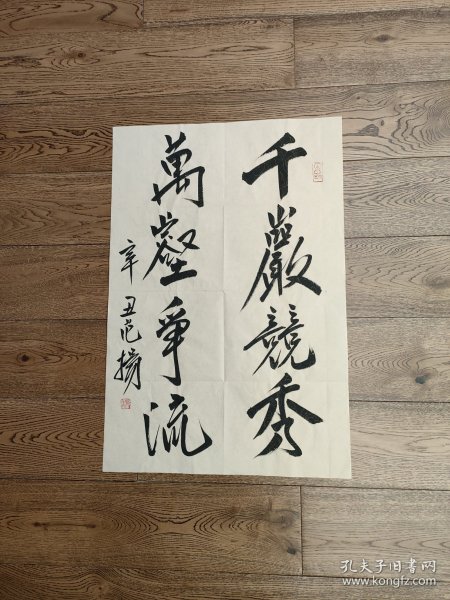 千巖競秀
萬壑爭流
辛丑范揚
孔夫子旧书网
www.kongfz.com